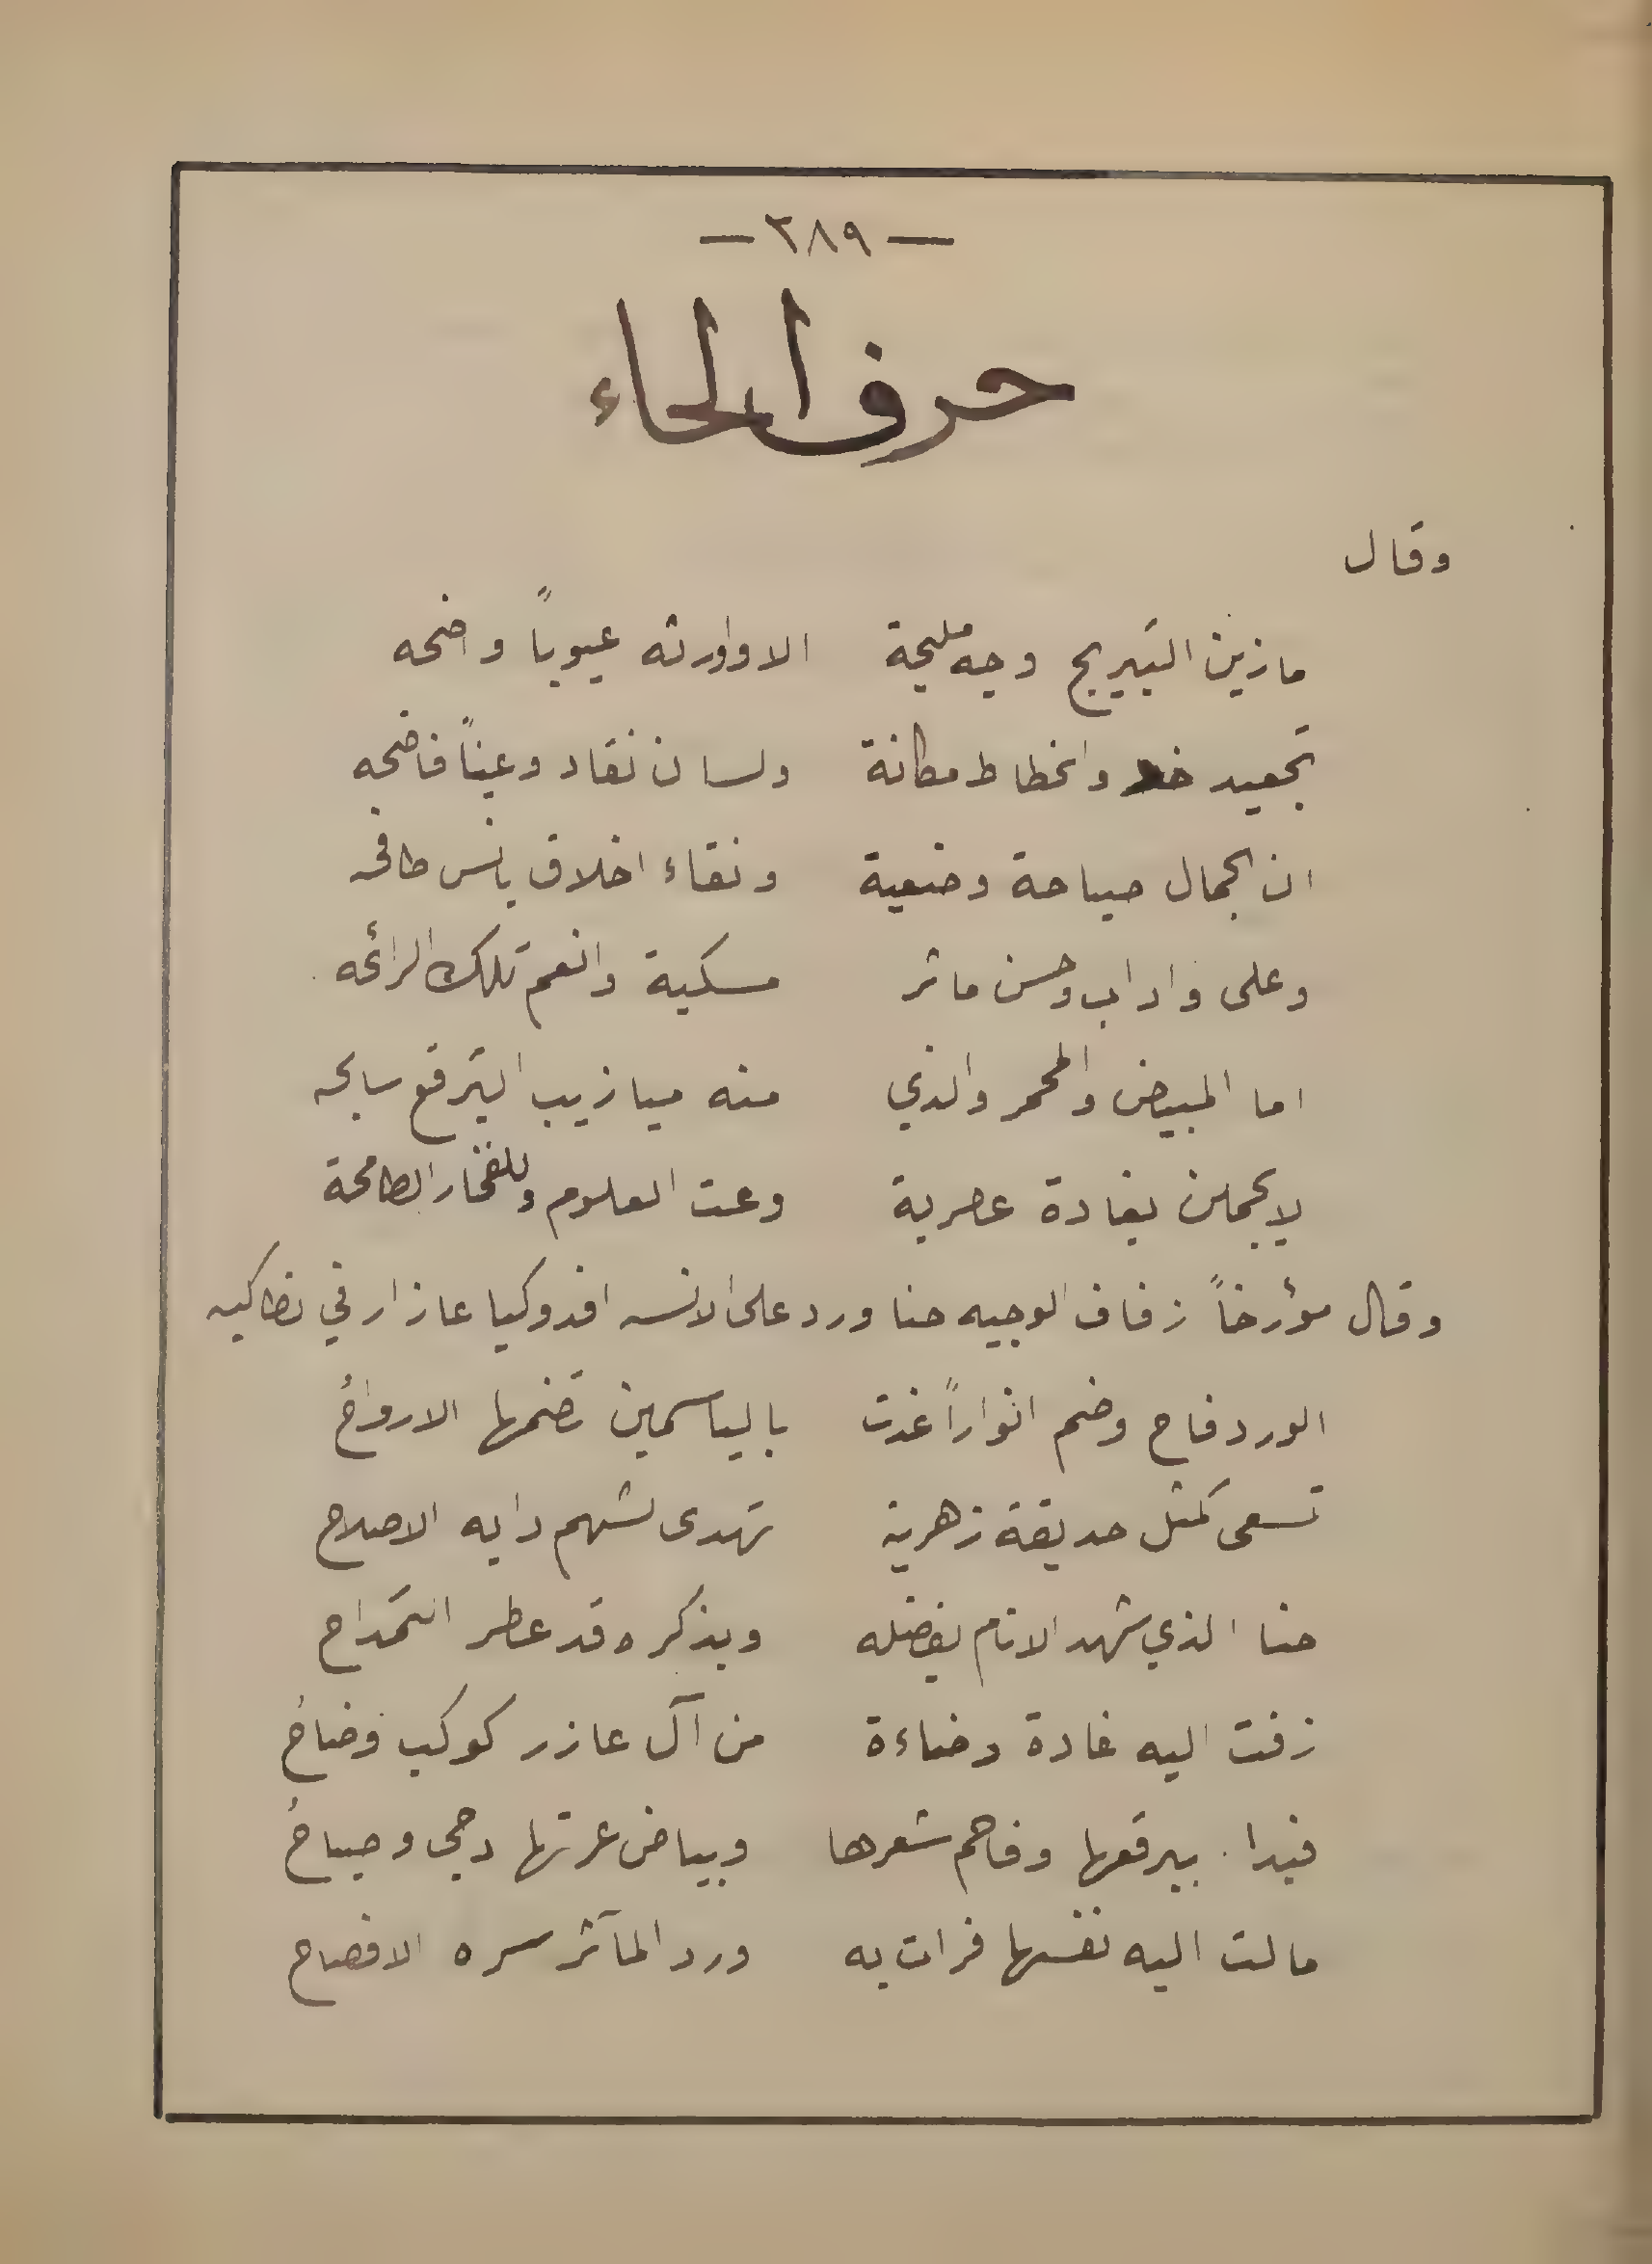 — ٣٨٩ —
حرف الحاء
وقال
ما زين التبريج وجه مليحة الا واورثه عيوباً واضحه
تجعيد خد وانحطاط مكانة ولسان نقاد وعيناً فاضحه
ان الجمال صباحة وضعية ونقاء اخلاق بانس طافحه
وعلى واداب وحسن ماثر مسكية وانعم تلك الرائحه
اما المبيض والمحمر والذي منه ميازيب التبرقع سابحه
لا يجملن بغادة عصرية وعت العلوم وللفخار الطامحة
وقال مؤرخاً زفاف الوجيه حنا ورد على الانسه افدوكيا عازار في نطاكيه
الورد فاح وضم انواراً غدت بالياسمين تضمها الارواحُ
تسعى كمثل حديقة زهرية تهدى لشهم دابه الاصلاح
حنا الذي شهد الانام بفضله وبذكره قد عطر التمداح
زفت اليه غادة وضاءة من آل عازر كوكب وضاحُ
فبدا ببرقعها وفاحم شعرها وبياض غرتها دجى وصباحُ
مالت اليه نفسها فرات به ورد المآثر سره الافصاح